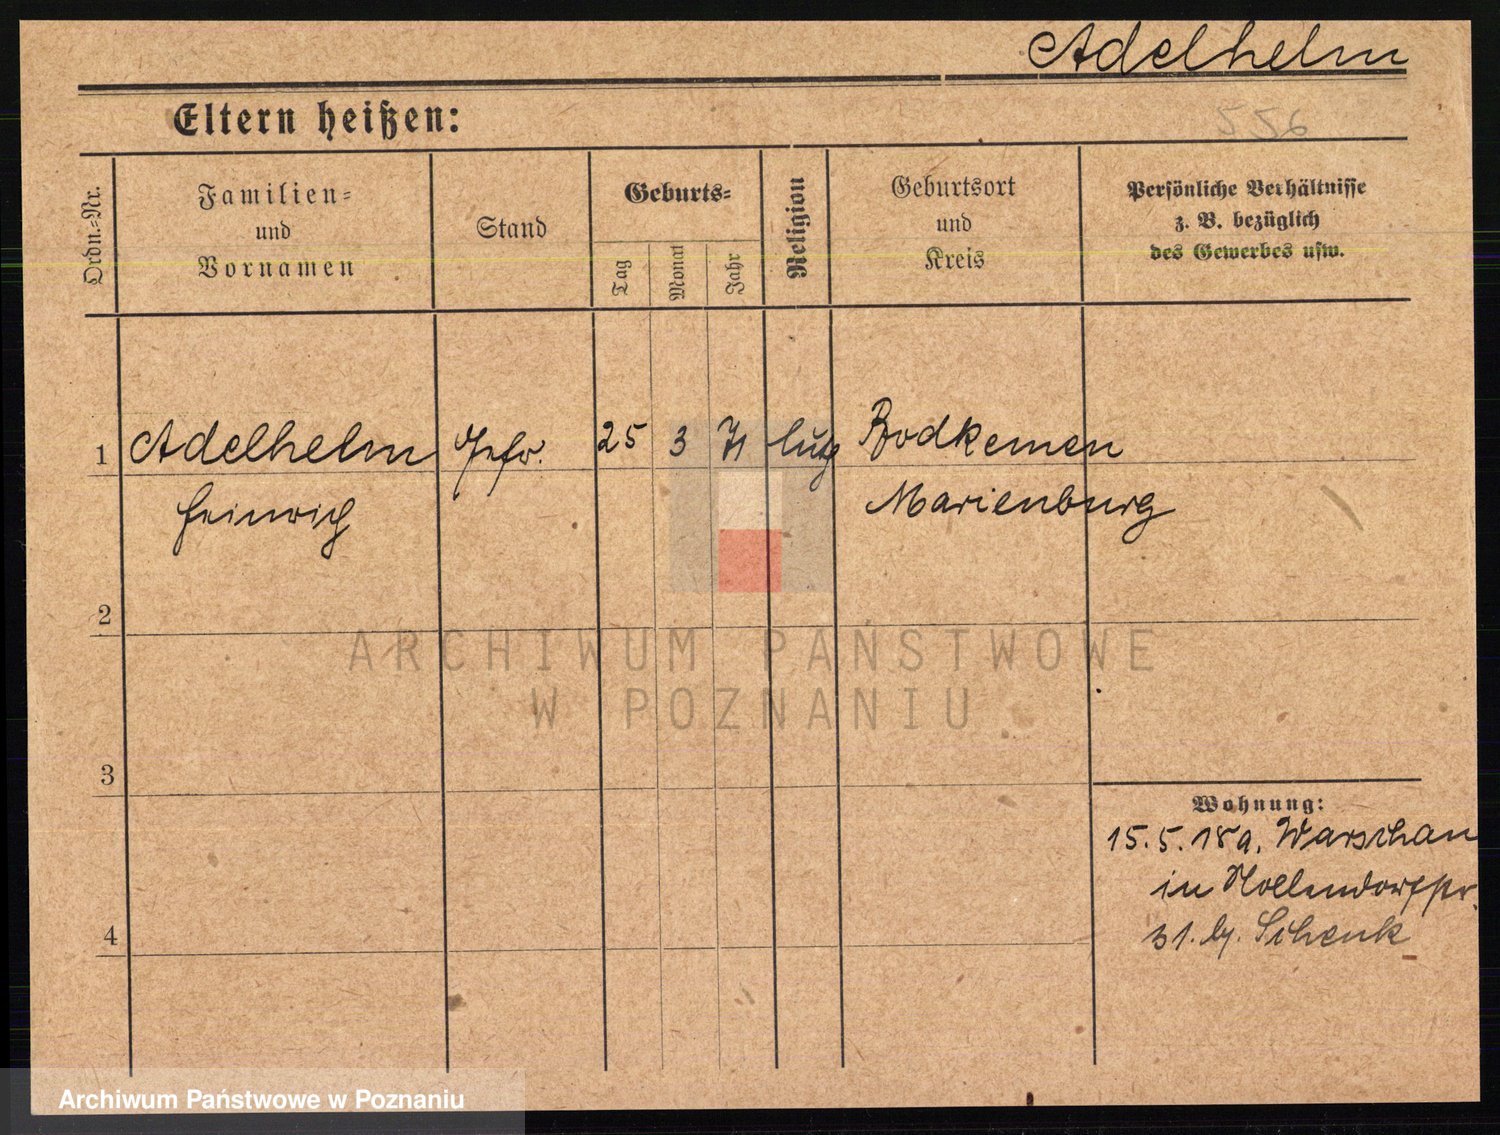 Adelhelm
Eltern heißen:
556
Ordn.-Nr.
Familien=
und
Vornamen
Stand
Geburts=
Tag
Monat
Jahr
Religion
Geburtsort
und
Kreis
Persönliche Verhältnisse
z. B. bezüglich
des Gewerbes usw.
1 Adelhelm Gefr. 25 3 71 Bodkemen
Heinrich Marienburg
2
3
4
Wohnung:
15.5.18 a. Warschau
in Nollendorfstr.
31. Schenk
ARCHIWUM PAŃSTWOWE
W POZNANIU
Archiwum Państwowe w Poznaniu